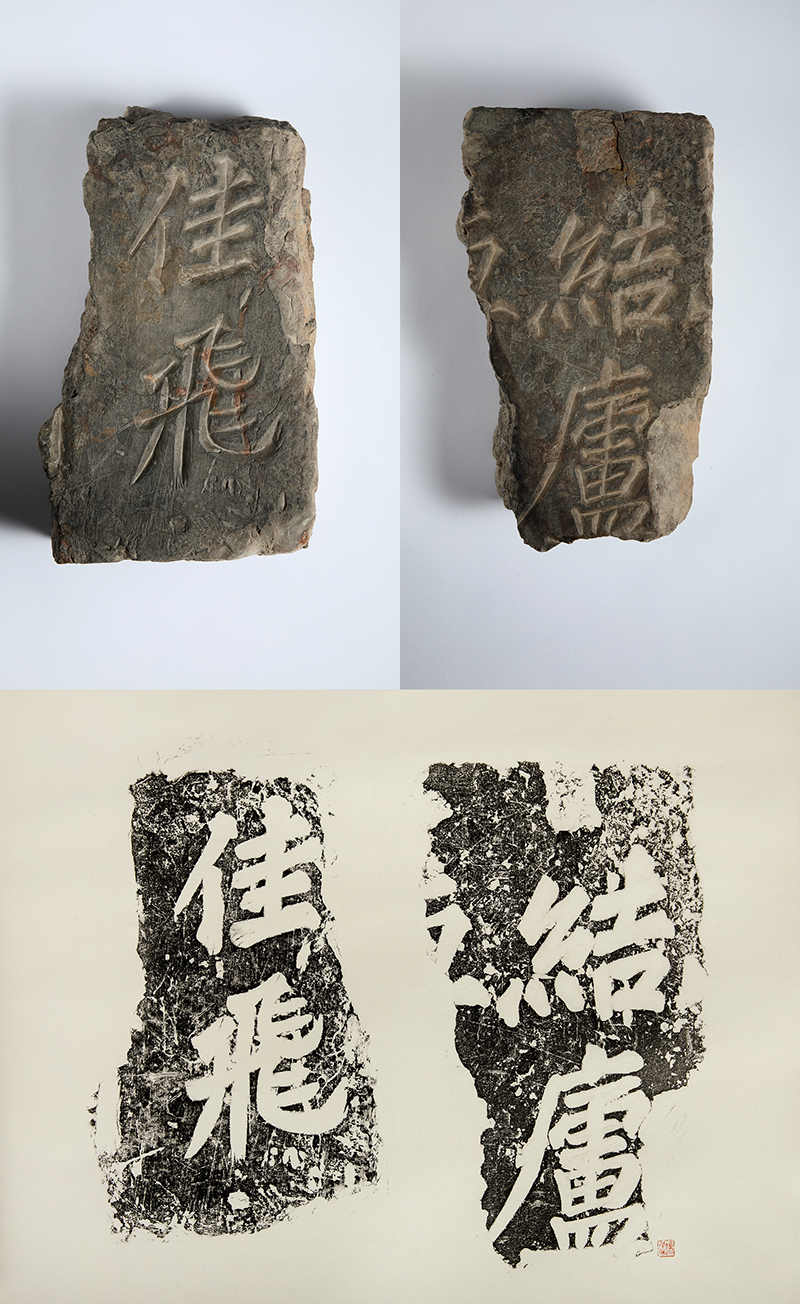 結廬
佳飛
結廬
佳飛